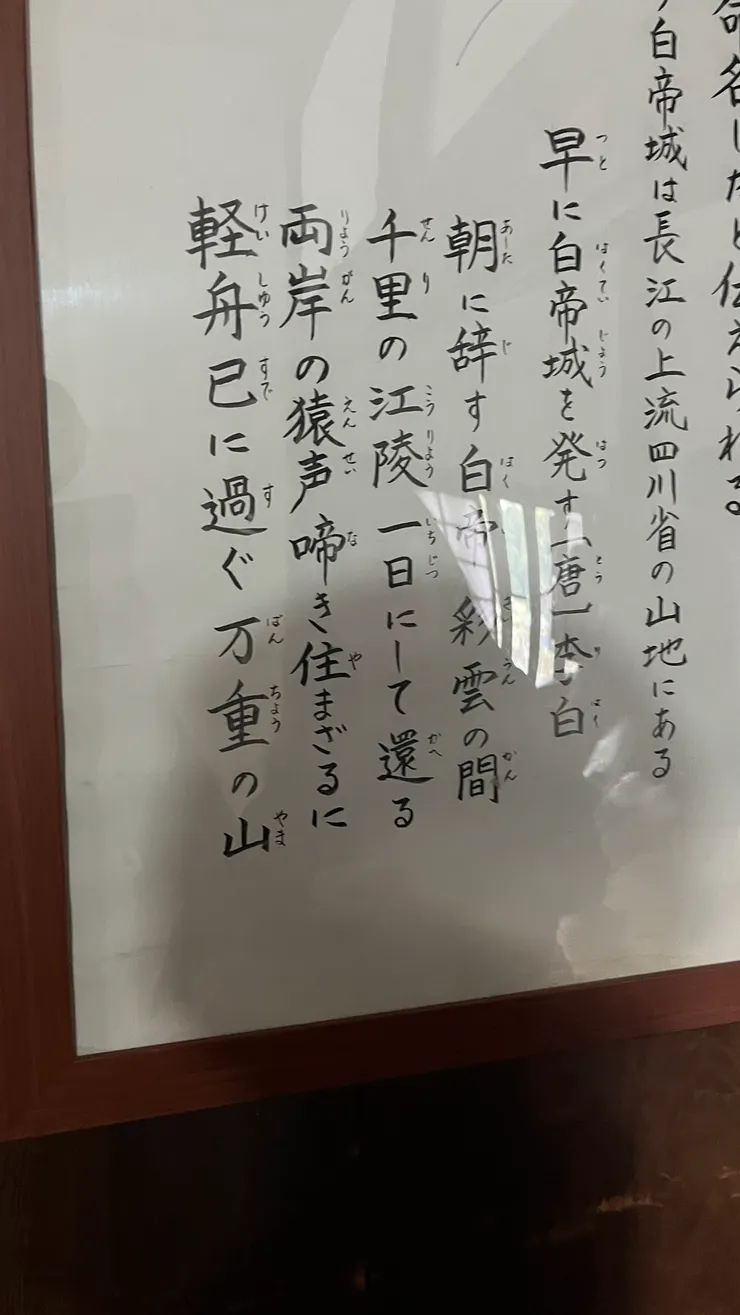 命名したと伝えられる。
白帝城は長江の上流四川省の山地にある
早に白帝城を発す 唐 李白
朝に辞す白帝 彩雲の間
千里の江陵一日にして還る
両岸の猿声啼き住まざるに
軽舟已に過ぐ万重の山